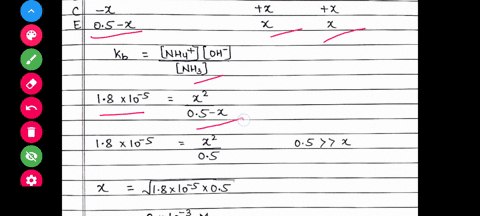 C -x +x +x
E 0.5-x x x
Kb = [NH4+] [OH-] / [NH3]
1.8 x 10-5 = x2 / 0.5-x
1.8 x 10-5 = x2 / 0.5 0.5 >> x
x = √1.8 x 10-5 x 0.5